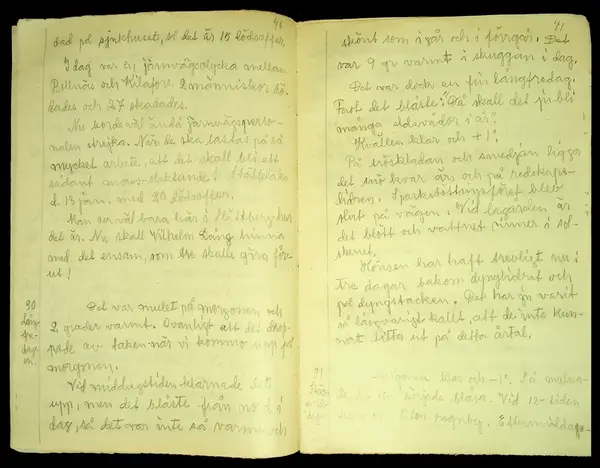 40
död på sjukhuset, så det är 15 dödsoffer.
I dag var en järnvägsolycka mellan
och Kilafors. 2 människor dö-
dades och 27 skadades.
Nu borde väl ändå järnvägsperso-
nalen strejka. När de ska lastas på så
mycket arbete, att det skall bli ett
sådant
d. 13 jan. med 20 dödsoffer.
Man ser väl bara här i hur
det är. Nu skall Wilhelm Lång hinna
med det ensam, som tre skulle göra för-
ut!
30
Lång-
fre-
dag-
en.
Det var mulet på morgonen och
2 grader varmt. Ovanligt att det drop-
pade av taken när vi kommo upp på
morgonen.
Vid middagstiden klarnade det
upp, men det blåste från nord i
dag, så det var inte så varmt och
41
skönt som i går och i förrgår. Det
var 9 gr varmt i skuggan i dag.
Det var dock en fin långfredag.
Fast det blåste. "Då skall det ju bli
många eldsvådor i år."
Kvällen klar och +1°.
På tröskladan och smedjan ligger
det snö kvar än och på redskaps-
lidren. Sparkstöttingsföret blev
slut på vägen. Vid lagården är
det blött och vattnet rinner i sol-
skenet.
Hönsen har haft trevligt nu i
tre dagar bakom dynglidret och
på dyngstacken. Det har ju varit
så långvarigt kallt, att de inte kun-
nat titta ut på detta årtal.
31
Morgonen klar och -1°. Så mulna-
de det och började blåsa. Vid 12-tiden
Eftermiddags-